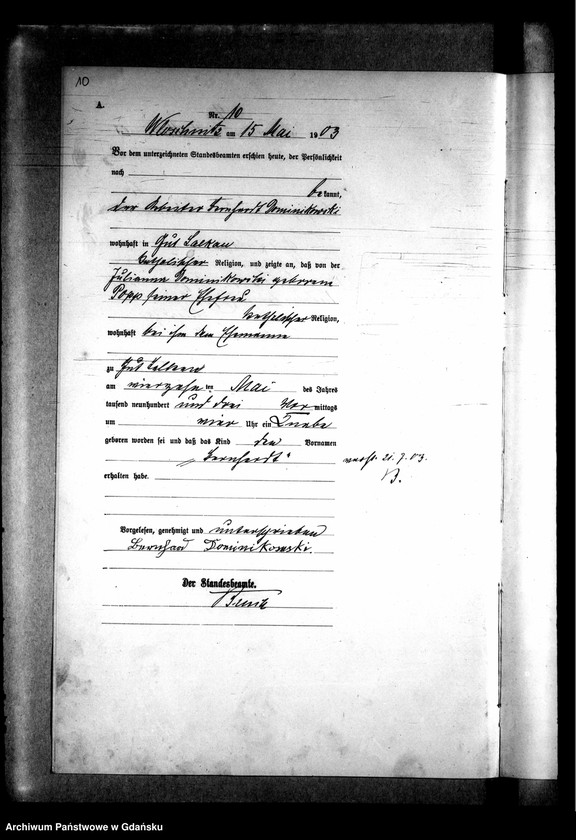 10
A.
Nr. 10
am 15 Mai 1903
Vor dem unterzeichneten Standesbeamten erschien heute, der Persönlichkeit
nach
be kannt,
der Arbeiter Bernhardt Dominikowski
wohnhaft in Gut Lalkau
katholischer Religion, und zeigte an, daß von der
Julianna Dominikowski geborenen
Popp seiner Ehefrau
katholischer Religion,
wohnhaft bei ihm dem Ehemanne
zu Gut Lalkau
am vierzehn ten Mai des Jahres
tausend neunhundert und drei Vor mittags
um vier Uhr ein Knabe
geboren worden sei und daß das Kind den Vornamen
„Bernhardt"
21. 7. 03.
B.
erhalten habe.
Vorgelesen, genehmigt und unterschrieben
Bernhard Dominikowski.
Der Standesbeamte.
Archiwum Państwowe w Gdańsku